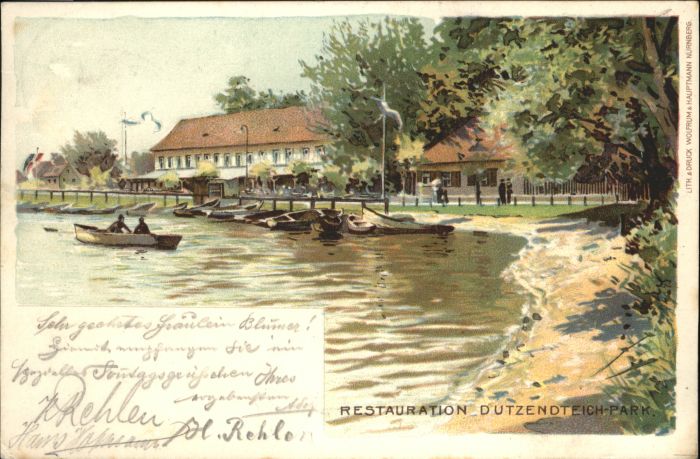 LITH. & DRUCK WOLFRUM & HAUPTMANN NÜRNBERG.
Sehr geehrtes Fräulein Blumer!
Hiermit empfangen Sie ein
spezielles Sonntagsgrüßchen Ihres
ergebensten
Rehlen
Hans
H. Rehlen
RESTAURATION DUTZENDTEICH-PARK.